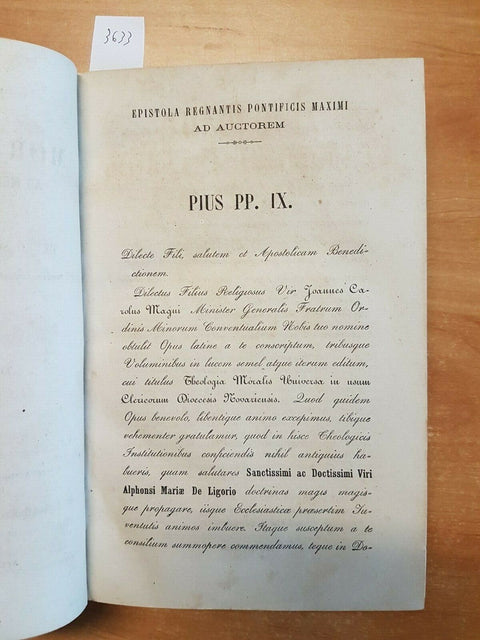 3633
EPISTOLA REGNANTIS PONTIFICIS MAXIMI
AD AUCTOREM
PIUS PP. IX.
Dilecte Fili, salutem et Apostolicam Benedi-
ctionem.
Dilectus Filius Religiosus Vir Joannes Ca-
rolus Magni Minister Generalis Fratrum Or-
dinis Minorum Conventualium Nobis tuo nomine
obtulit Opus latine a te conscriptum, tribusque
Voluminibus in lucem semel atque iterum editum,
cui titulus Theologia Moralis Universa in usum
Clericorum Dioecesis Novariensis. Quod quidem
Opus benevolo, libentique animo excepimus, tibique
vehementer gratulamur, quod in hisce Theologicis
Institutionibus conficiendis nihil antiquius ha-
bueris, quam salutares Sanctissimi ac Doctissimi Viri
Alphonsi Mariæ De Ligorio doctrinas magis magis-
que propagare, iisque Ecclesiasticæ præsertim Ju-
ventutis animos imbuere. Itaque susceptum a te
consilium summopere commendamus, teque in Do-